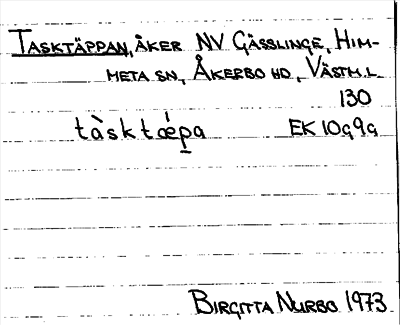 TASKTÄPPAN, ÅKER NV GÄSSLINGE, HIM-
META SN, ÅKERBO HD, VÄSTM.L.
130
tàsktǽpa EK 10g9g
BIRGITTA NURBO 1973